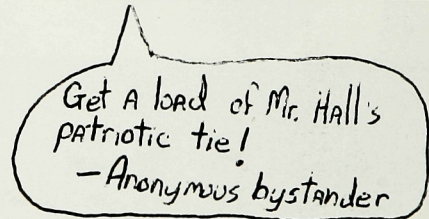 Get A load of Mr. Hall's
patriotic tie!
-Anonymous bystander